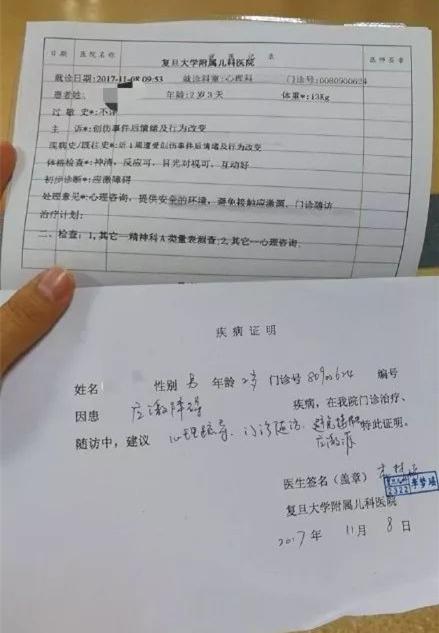 日期 医院名称 就医记录表 医师签章
复旦大学附属儿科医院
就诊日期:2017-11-08 09:53 就诊科室:心理科 门诊号:0080900624
患者姓名: 年龄:2岁3天 体重*:13Kg
过敏史*:不详
主诉*:创伤事件后情绪及行为改变
疾病史/既往史*:近1周遭受创伤事件后情绪及行为改变
体格检查*:神清,反应可,目光对视可,互动好
初步诊断*:应激障碍
处理意见*:心理咨询,提供安全的环境,避免接触应激源,门诊随访
治疗计划:
二、检查:1,其它--精神科A类量表测查;2,其它--心理咨询.
疾病证明
姓名 性别 男 年龄 2岁 门诊号 80900624 编号
因患 应激障碍 疾病,在我院门诊治疗、
随访中,建议 心理疏导、门诊随访、避免接触应激源 特此证明。
医生签名(盖章)
复旦大学附属儿科医院
2017年 11月 8日